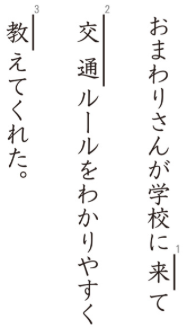 おまわりさんが学校に来て1
交通ルールをわかりやすく2
教えてくれた。3